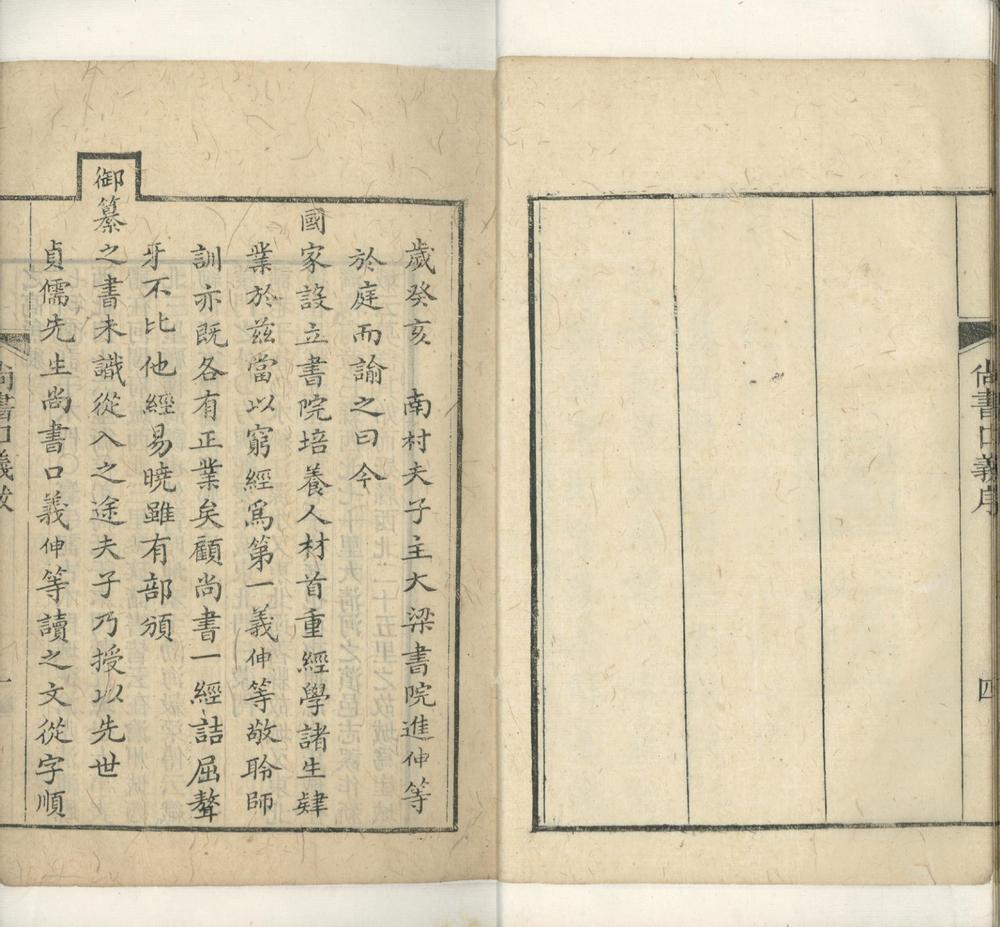 尚書口義序
四
歲癸亥　南村夫子主大梁書院進伸等
於庭而諭之曰今
國家設立書院培養人材首重經學諸生肄
業於茲當以窮經爲第一義伸等敬聆師
訓亦既各有正業矣顧尚書一經詰屈聱
牙不比他經易曉雖有部頒
御纂之書未識從入之途夫子乃授以先世
貞儒先生尚書口義伸等讀之文從字順
尚書口義跋
一